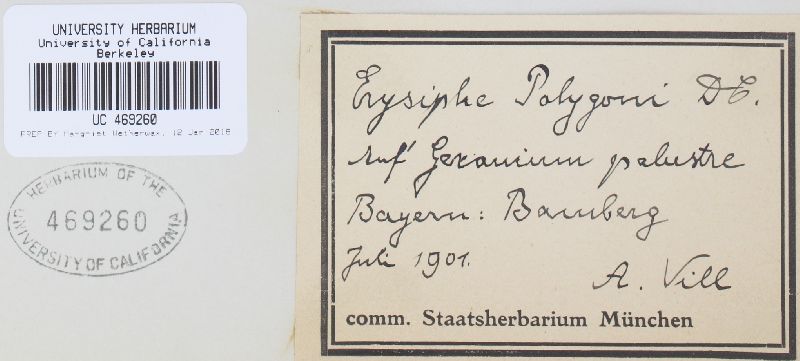 UNIVERSITY HERBARIUM
University of California
Berkeley
UC 469260
PREP BY Margriet Wetherwax, 12 Jan 2018
HERBARIUM OF THE
469260
UNIVERSITY OF CALIFORNIA
Erysiphe Polygoni DC.
Auf Geranium palustre
Bayern: Bamberg
Juli 1901.
A. Vill
comm. Staatsherbarium München